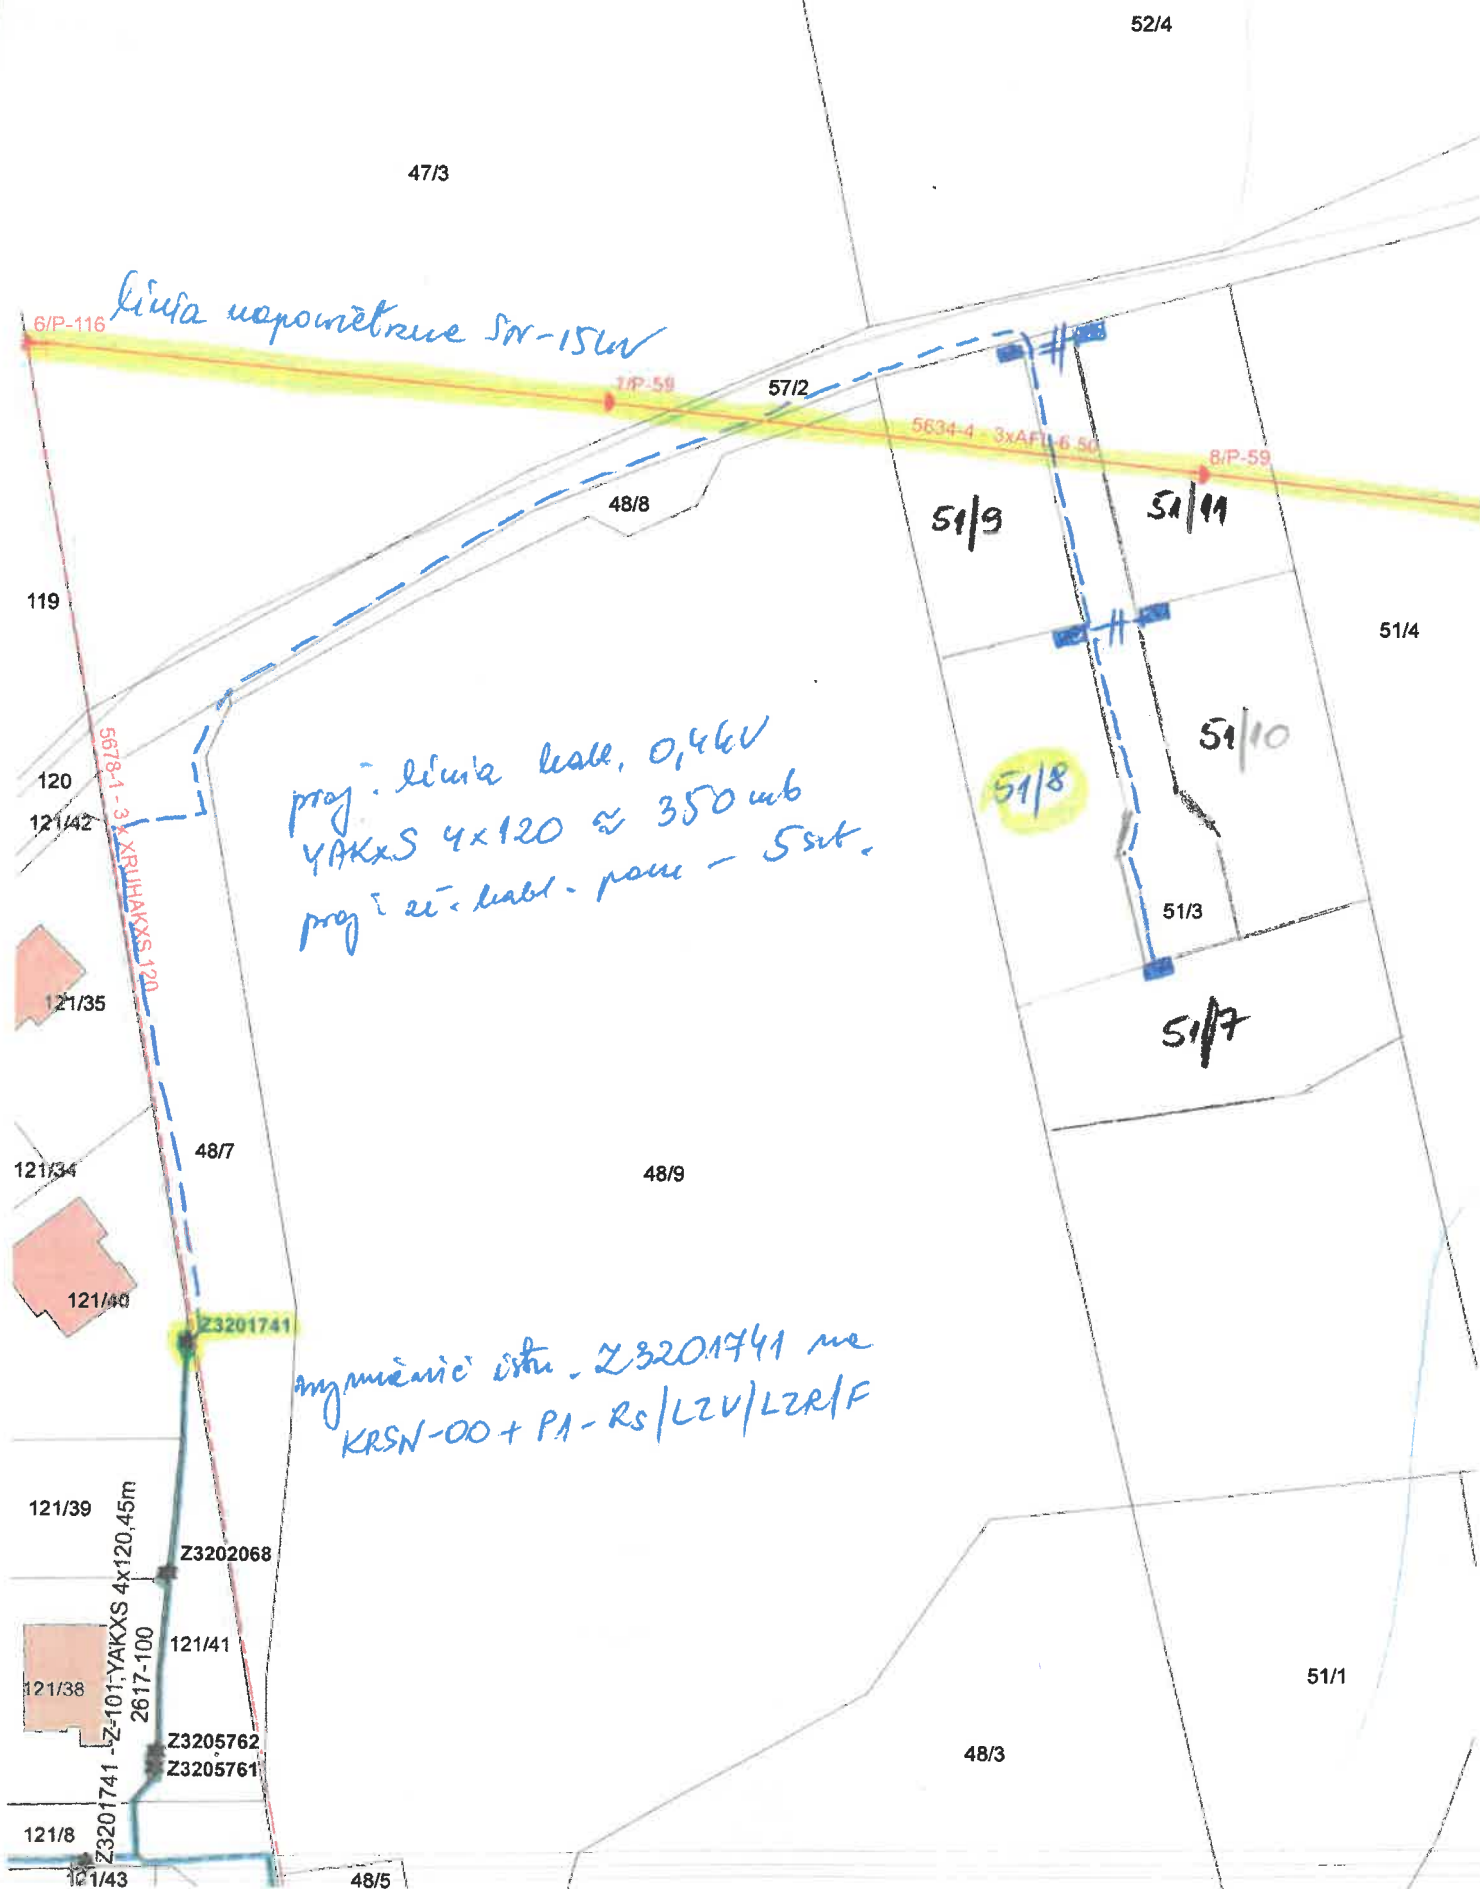 52/4
47/3
linia napowietrzne SN-15kV
6/P-116
7/P-59
57/2
5634-4 - 3xAFL-6 50
8/P-59
48/8
51/9
51/11
119
51/4
5678-1 - 3 x XRUHAKXS 120
120
121/42
proj. linia kabl. 0,4kV
YAKXS 4x120 ≈ 350 mb
proj. zł. kabl. pom - 5 szt.
51/10
51/8
51/3
121/35
51/7
48/7
121/34
48/9
121/40
Z3201741
wymienić istn. Z3201741 na
KRSN-00 + P1-RS/LZV/LZR/F
121/39
Z3202068
Z3201741 - Z-101,YAKXS 4x120,45m
2617-100
121/41
121/38
51/1
Z3205762
Z3205761
48/3
121/8
121/43
48/5